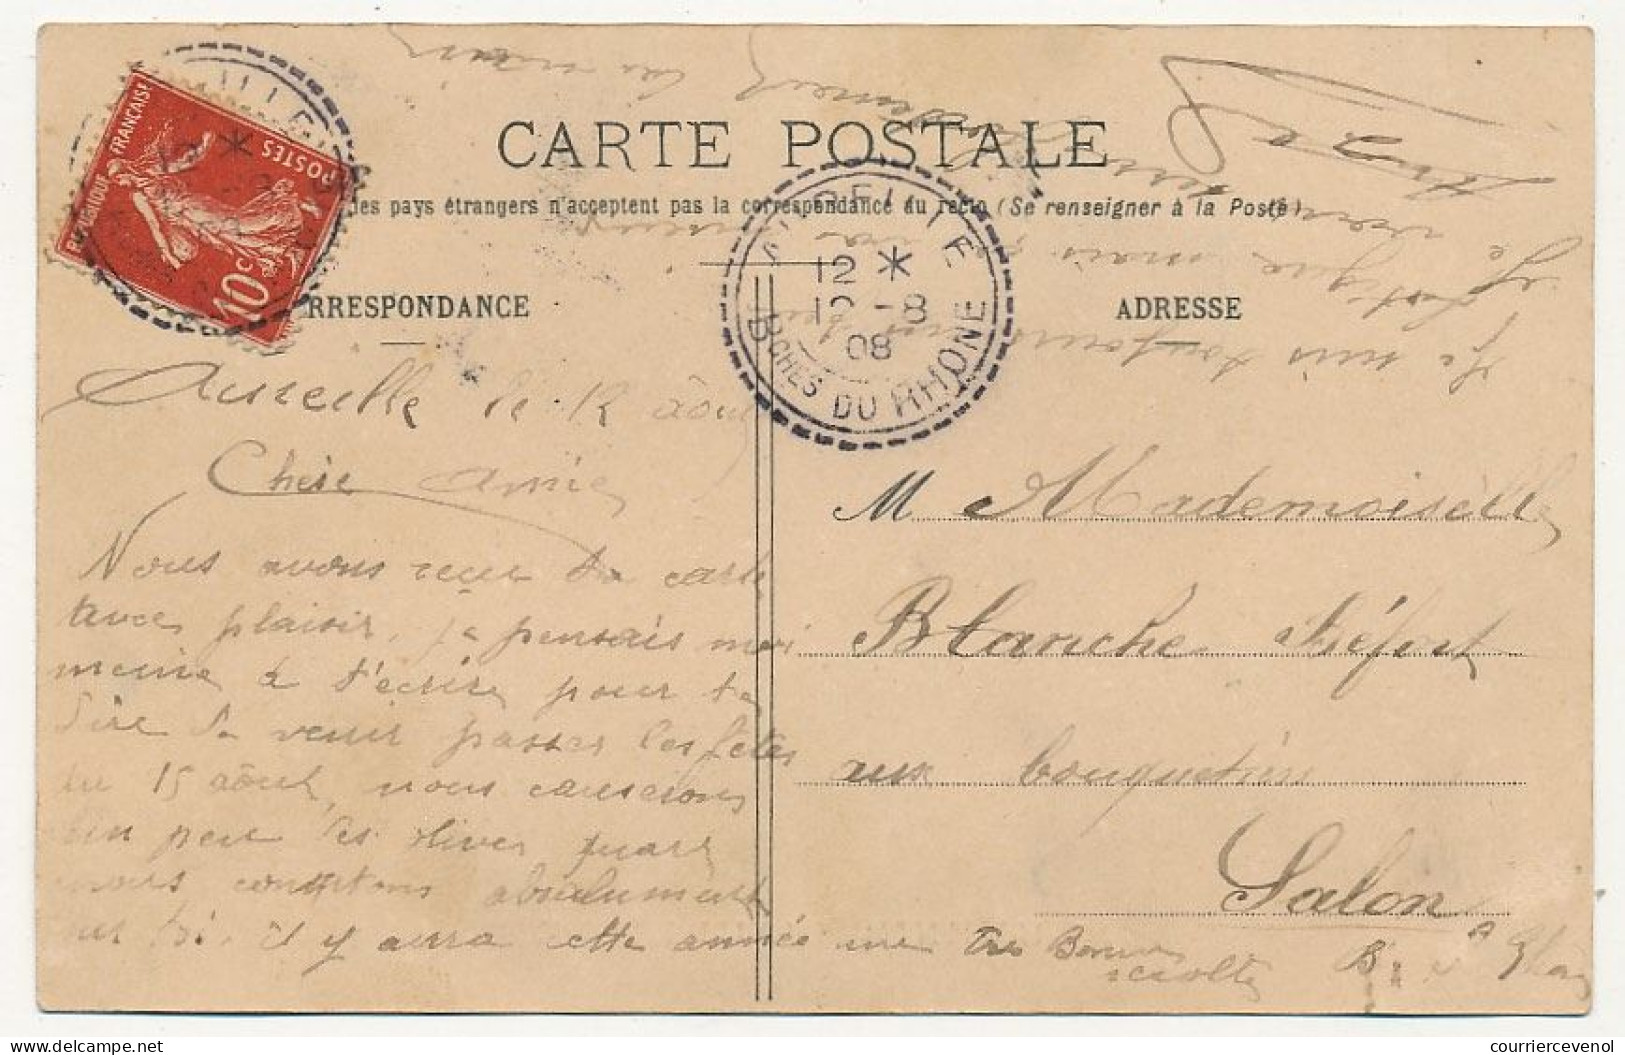 CARTE POSTALE
des pays étrangers n'acceptent pas la correspondance au recto (Se renseigner à la Poste)
RÉPUBLIQUE FRANÇAISE
POSTES
10c
AUREILLE
12 *
12 -8
08
BCHES DU RHONE
RRESPONDANCE
ADRESSE
Aureille le 12 août
Chère Amie
Nous avons reçu ta carte
avec plaisir, je pensais moi
meme a t'écrire pour te
dire de venir passer les fêtes
du 15 août, nous causerons
un peu des olives quare
nous comptons absolument
sur toi. il y aura cette année une très Bonne
récolte
M Mademoiselle
Blanche
aux bouquetins
Salon
B. d Rhône
Je suis toujours
mais